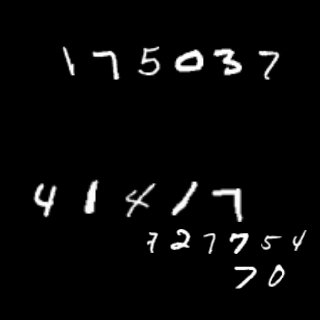 175037
41417
727754
70